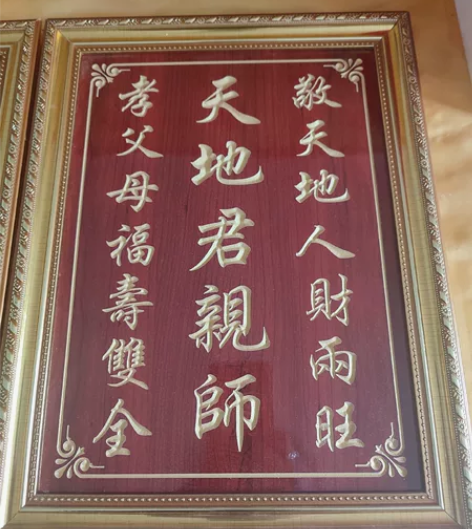 敬天地人財兩旺
天地君親師
孝父母福壽雙全